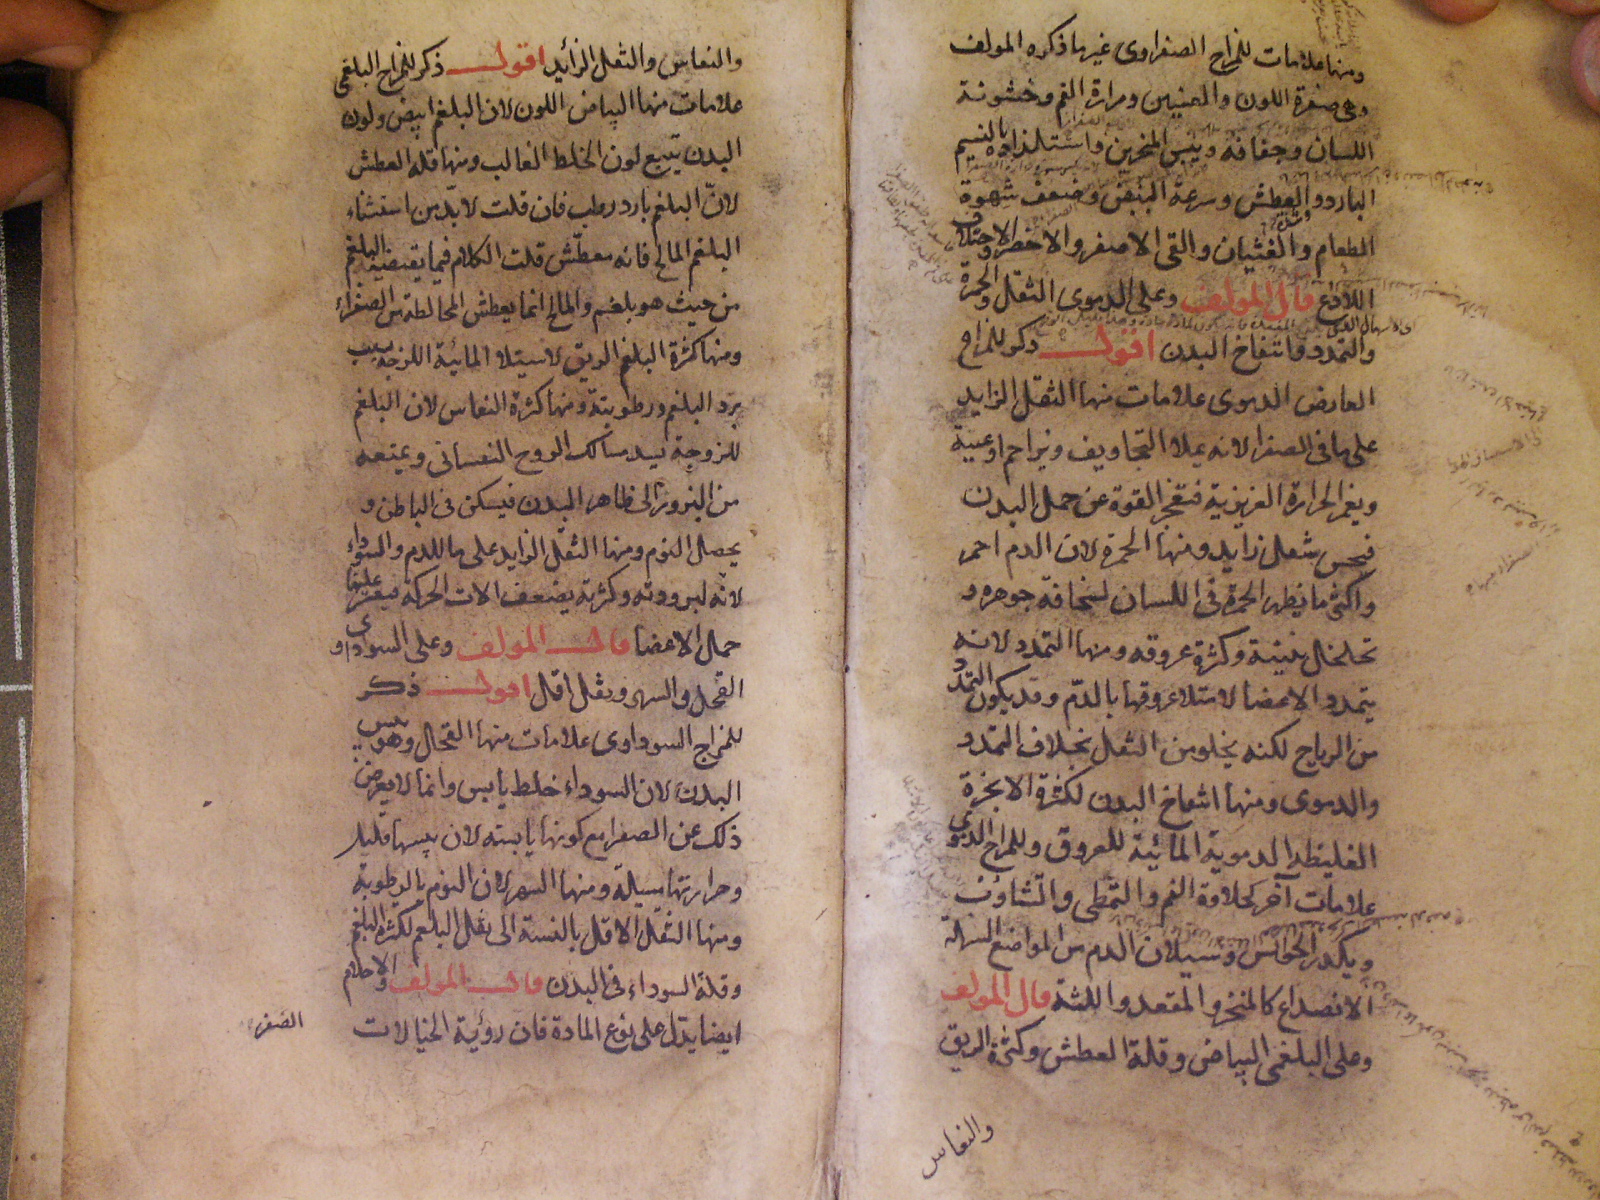 ومنها علامات للمزاج الصفراوى غير ما ذكره المولف
وهى صفرة اللون والعينين ومرارة الفم وخشونة
اللسان وجفافه ويبس المنخرين واستلذاذه بالنسيم
البارد والعطش وسرعة النبض وضعف شهوة
الطعام والغثيان والقى الاصفر والاخضر والاختلاف
اللاذع قال المولف وعلى الدموى الثقل والحمرة
والتمدد وانتفاخ البدن اقول ذكر للمزاج
العارض الدموى علامات منها الثقل الزايد
على ما فى الصفرا لانه يملا التجاويف ويزاحم اوعية
ويغمر الحرارة الغريزية فتعجز القوة عن حمل البدن
فيحس ثقل زايد ومنها الحمرة لان الدم احمر
واكثر ما يظهر الحمرة فى اللسان لسخافة جوهره و
تخلخل بنيته وكثرة عروقه ومنها التمدد لانه
يتمدد الاعضا لامتلا عروقها بالدم وقد يكون التمدد
من الرياح لكنه يخلو من الثقل بخلاف التمدد
والدموى ومنها انتفاخ البدن لكثرة الابخرة
الغليظة الدموية المائية للعروق وللمزاج الدموى
علامات آخر كحلاوة الفم والتمطى والتثاوب
ويكدر الحواس وسيلان الدم من المواضع السهلة
الانصداع كالمنخر والمقعد واللثة قال المولف
وعلى البلغمى البياض وقلة العطش وكثرة الريق
والنعاس
والنعاس والثقل الزائد اقول ذكر للمزاج البلغمى
علامات منها البياض اللون لان البلغم ابيض ولون
البدن يتبع لون الخلط الغالب ومنها قلة العطش
لان البلغم بارد رطب فان قلت لابد من استثناء
البلغم المالح فانه معطش قلت الكلام فيما يقتضيه البلغم
من حيث هو بلغم والمالح انما يعطش لمخالطة من الصفراء
ومنها كثرة البلغم الريق لاستيلا المائية اللزجة بسبب
برد البلغم ورطوبته ومنها كثرة النعاس لان البلغم
للزوجة يسد مسالك الروح النفسانى ويمنعه
من البروز الى ظاهر البدن فيسكن فى الباطن و
يحصل النوم ومنها الثقل الزايد على ما للدم والسوداء
لانه لبرودته وكثرته يضعف الات الحركة فيعسر عليها
حمل الاعضا قال المولف وعلى السوداوى
القحل والسهر وثقل اقل اقول ذكر
للمزاج السوداوى علامات منها القحل وهو يبس
البدن لان السوداء خلط يابس وانما لا يعرض
ذلك عن الصفرا مع كونها يابسة لان يبسها قليل
وحرارتها مسيلة ومنها السهر لان النوم بالرطوبة
ومنها الثقل الاقل بالنسبة الى ثقل البلغم لكثرة البلغم
وقلة السوداء فى البدن قال المولف والاحلام
ايضا يدل على نوع المادة فان رؤية الخيالات
الصفر